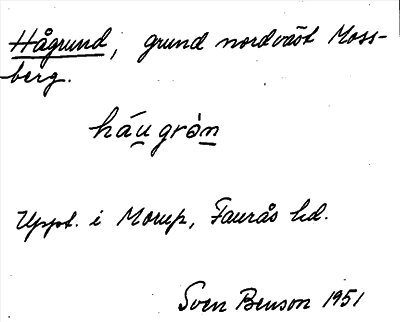 Hågrund, grund nordväst Moss-
berg.
háu̲ gròn̲
Uppt. i Morup, Faurås hd.
Sven Benson 1951